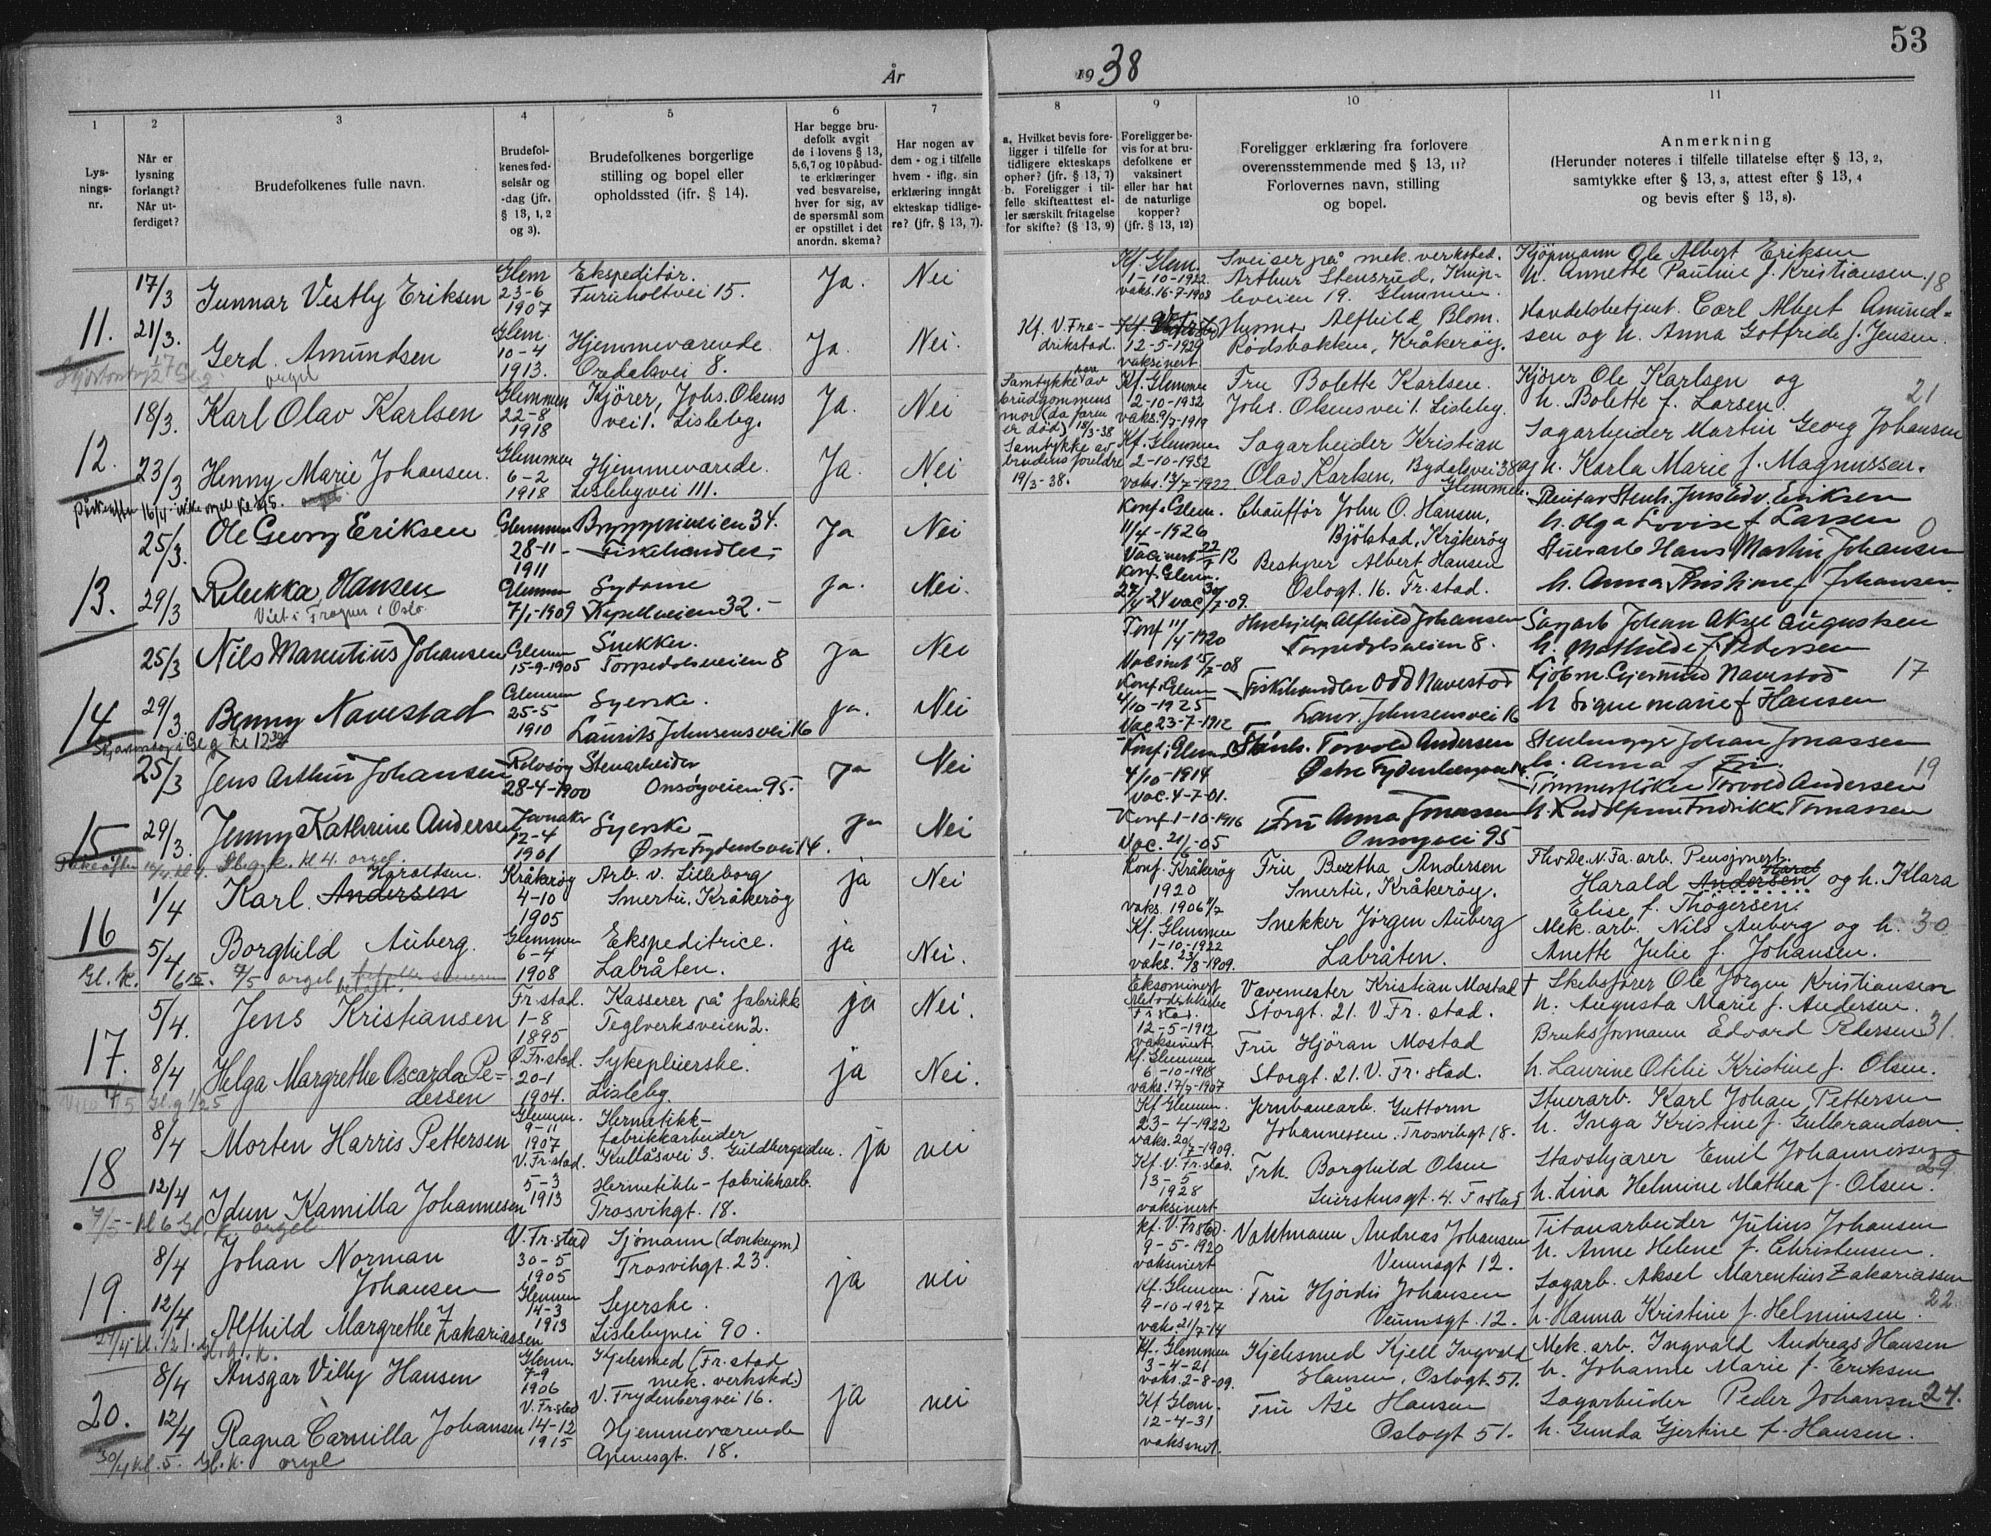 53
År
1938
1
2
3
4
5
6
7
8
9
10
11
Lys-
nings-
nr.
Når er
lysning
forlangt?
Når ut-
ferdiget?
Brudefolkenes fulle navn.
Brudefol-
kenes fød-
selsår og
-dag (jfr.
§ 13, 1, 2
og 3).
Brudefolkenes borgerlige
stilling og bopel eller
opholdssted (ifr. § 14).
Har begge bru-
defolk avgit
de i lovens § 13,
5, 6, 7 og 10 påbud-
te erklæringer
ved besvarelse,
hver for sig, av
de spørsmål som
er opstillet i det
anordn. skema?
Har nogen av
dem - og i tilfelle
hvem - iflg. sin
erklæring inngått
ekteskap tidlige-
re? (jfr. § 13, 7).
a. Hvilket bevis fore-
ligger i tilfelle for
tidligere ekteskaps
ophør? (jfr. § 13, 7)
b. Foreligger i til-
felle skifteattest el-
ler særskilt fritagelse
for skifte? (§ 13, 9)
Foreligger be-
vis for at bru-
defolkene er
vaksinert
eller har hat
de naturlige
kopper?
(jfr. § 13, 12)
Foreligger erklæring fra forlovere
overensstemmende med § 13, 11?
Forlovernes navn, stilling
og bopel.
Anmerkning
(Herunder noteres i tilfelle tillatelse efter § 13, 2,
samtykke efter § 13, 3, attest efter § 13, 4
og bevis efter § 13, 8).
11.
17/3
Gunnar Vestly Eriksen
Glem
23-6
1907
Ekspeditør.
Furuholtvei 15.
Ja.
Nei
Kf. Glem.
1-10-1922
vaks. 16-7-1908
Sveiser på mek. verksted.
Arthur Stensrud, Knip-
leveien 19. Glemmen.
Kjøpmann Ole Albert Eriksen
h. Annette Pauline f. Kristiansen.
18
21/3.
Gerd Amundsen
Glem.
10-4
1913.
Hjemmeværende
Oredalsvei 8.
Ja.
Nei.
Kf. V. Fre-
drikstad.
12-5-1929
vaksinert
Husmor Alfhild Blom.
Rødsbakken, Kråkerøy.
Handelsbetjent Carl Albert Amund-
sen og h. Anna Gotfrede f. Jensen.
orgel
12.
18/3.
Karl Olav Karlsen
Glemmen
22-8
1918
Kjører, Johs. Olsens
vei 1. Lisleby.
Ja.
Nei
Samtykke av
brudgommens
mor (da faren
er død) 18/3-38
Kf. Glemmen
2-10-1932
vaks. 9/7-1919
Fru Bolette Karlsen.
Johs. Olsensvei 1. Lisleby.
Kjører Ole Karlsen og
h. Bolette f. Larsen.
21
23/3
Henny Marie Johansen.
Glemmen
6-2
1918
Hjemmeværende.
Lislebyvei 111.
Ja.
Nei
Samtykke av
brudens foreldre
19/3-38.
Kf. Glemmen
2-10-1932
vaks. 13/7-1922
Sagarbeider Kristian
Olav Karlsen, Bydalsvei 38
Glemmen.
Sagarbeider Martin Georg Johansen
og h. Karla Marie f. Magnussen.
Påskeaften 16/4 - ikke orgel kl 5. orgel.
13.
25/3.
Ole Georg Eriksen
Glemmen
28-11-
1911
Bryggeriveien 34.
Fiskehandler
Ja
Nei
Konf. Glem.
11/4-1926
Chauffør John O. Hansen,
Bjølstad, Kråkerøy
h. Olga Lovise f Larsen
0
29/3
Rebekka Hansen
Viet i Frogner i Oslo.
Glemmen
7/1-1909
Sydame
Kapellveien 32.-
ja.
Nei.
Konf. Glem.
Bestyrer Albert Hansen
Oslogt. 16. Fr. stad.
Stuerarb Hans Martin Johansen
h. Anna Kristine f Johansen.
14
25/3
Nils Marentius Johansen
Glemm
15-9-1905
Snekker.
Torpedalsveien 8
ja
Nei
Konf 11/4-1920
Vacinert 15/7-08
Alfhild Johansen
Torpedalsveien 8.
Sagarb Johan Aksel Augustsen
h. Mathilde f. Pedersen
17
29/3.
Benny Navestad
Glemmen
25-5
1910
Syerske.
Laurits Johnsensvei 16
ja.
Nei
Konf. Glem
4/10-1925
Vac 23-7-1912
Fiskehandler Odd Navestad
Laur. Johnsensvei 16
Kjøbm. Gjermund Navestad
h Signe Marie f Hansen
15
25/3
Jens Arthur Johansen
Rolvsøy
28-4-1900
Stenarbeider
Onsøyveien 95.
ja
Nei
Konf. i Glemm
4/10-1914
Vac. 4-7-01.
Torvald Andersen
Østre Frydenbergvei 14.
Stenhugger Johan Jonassen
h. Anna f
19
29/3.
Jenny Kathrine Andersen
12-4
1901
Syerske
Østre Frydenb vei 14.
ja
Nei
Konf 1-10-1916
Vac. 21/6-05
Fru Anna Jonassen
Onsøyvei 95
Tømmerfløter Torvald Andersen
h. Rudolfine Fredrikke Tomassen
Gl. g. k. kl 4. orgel.
16
1/4
Karl Andersen
Haraldsen.
Kråkerøy
4-10
1905
Arb. v. Lilleborg
Smertu, Kråkerøy
ja
Nei
Konf. Kråkerøy
1920
vaks. 1906
Fru Bertha Andersen
Smertu, Kråkerøy.
Fhv. De. N. Fa. arb. Pensjonert.
Harald Andersen og h. Klara
Elise f. Thøgersen.
5/4
Borghild Auberg.
Glemmen
6-4
1908
Ekspeditrice.
Labråten.
ja
Nei.
Kf. Glemmen
1-10-1922
vaks. 23/8-1909.
Snekker Jørgen Auberg
Labråten.
Mek. arb. Nils Auberg og h.
Anette Julie f. Johansen.
30
Gl. k. 6 7/5 orgel
17.
5/4.
Jens Kristiansen
Fr. stad.
1-8
1895
Kasserer på fabrikk
Teglverksveien 2.
ja
Nei.
Metodistkirke
Fr. stad.
12-5-1912
vaksinert.
Vævemester Kristian Mostad
Storgt. 21. V Fr. stad.
† Skibsfører Ole Jørgen Kristiansen
h. Augusta Marie f. Andersen.
31.
8/4
Helga Margrethe Oscarda Pe=
dersen
Ø. Fr. stad.
20-1
1904.
Sykepleierske.
Lisleby.
ja
Nei.
Kf. Glemmen
6-10-1918
vaks. 17/7-1907
Fru Hjøran Mostad
Storgt. 21. V. Fr. stad.
Bruksformann Edvard Pedersen
h. Laurine Otilie Kristine f. Olsen.
18
8/4
Morten Harris Pettersen
Glemm.
9-11
1907
Hermetikk-
fabrikkarbeider
Kullåsvei 3. Guldbergsiden.
ja
nei
Kf Glemm.
23-4-1922
vaks. 20/7-1909.
Jernbanearb. Guttorm
Johannessen. Trosvikgt 18.
Stuerarb. Karl Johan Pettersen
h. Inga Kristine f. Gulbrandsen.
29.
12/4
Idun Kamilla Johannesen
V. Fr. stad.
5-3
1913
Hermetikk-fabrikkarb.
Trosvikgt. 18.
Kf. V. Fr. stad.
13-5
1928
vaksinert
Frk. Borghild Olsen
Leiestensgt. 4. Fr stad
Stavskjærer Emil Johannessen
h. Lina Helmine Mathea f. Olsen.
7/5-kl 6 Gl. k. orgel
19.
8/4
Johan Norman
Johansen
V. Fr. stad
30-5
1905
Sjømann (donkeym)
Trosvikgt. 23.
ja
nei
Kf. V. Fr stad.
9-5-1920
vaksinert
Vaktmann Andreas Johansen
Veumsgt 12.
Titanarbeider Julius Johansen
h. Anne Helene f. Christensen.
12/4
Alfhild Margrethe Zakariassen
Glemm
14-3
1913
Syerske.
Lislebyvei 90.
Kf. Glemmen.
9-10-1927
vaks. 21/7-14
Fru Hjørdis Johansen
Veumsgt. 12.
Sagarb. Aksel Marentius Zakariassen
h. Hanna Kristine f. Helminsen.
22
Gl. k.
20.
8/4
Ansgar Villy Hansen
Glemm.
7-9
1906
Kjelesmed (Fr. stad
mek. verksted.)
V. Frydenbergvei 16.
ja
nei
Kf. Glemmen
3-4-21
vaks. 2-8-09.
Kjelesmed Kjell Ingvald
Hansen, Oslogt. 51.
Mek. arb. Ingvald Andreas Hansen
h. Johanne Marie f. Eriksen
24.
12/4
Ragna Camilla Johansen
V. Fr. stad
14-12
1915
Hjemmeværende
Apenesgt. 18.
Kf Glem.
12-4-31
vaksinert.
Fru Åse Hansen
Oslogt 51.
Sagarbeider Peder Johansen
h. Gunda Gjertine f. Hansen.
30/4 kl. 5. Gl. k. orgel